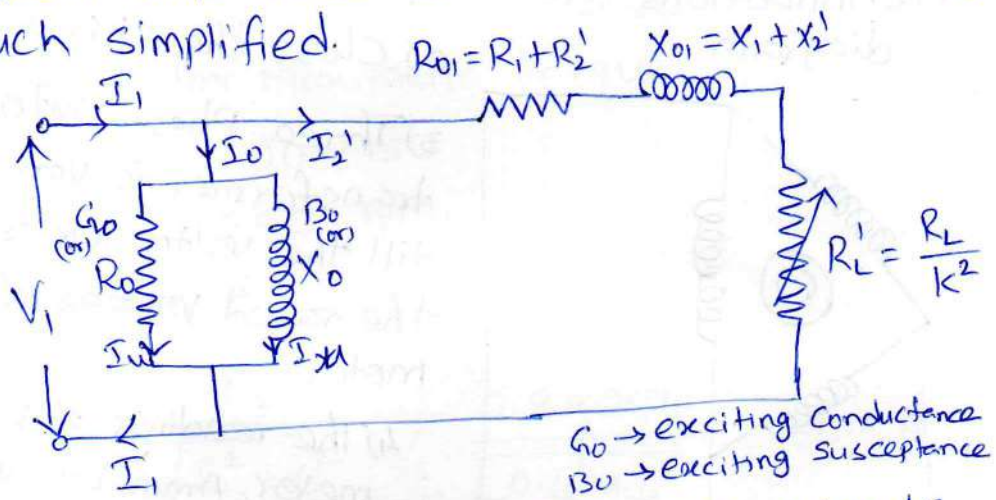 uch simplified.
R01 = R1 + R2'
X01 = X1 + X2'
I1
I0
I2'
G0
(or)
R0
B0
(or)
X0
V1
Iw
RL' = RL / K²
I1
G0 → exciting Conductance
B0 → exciting Susceptance